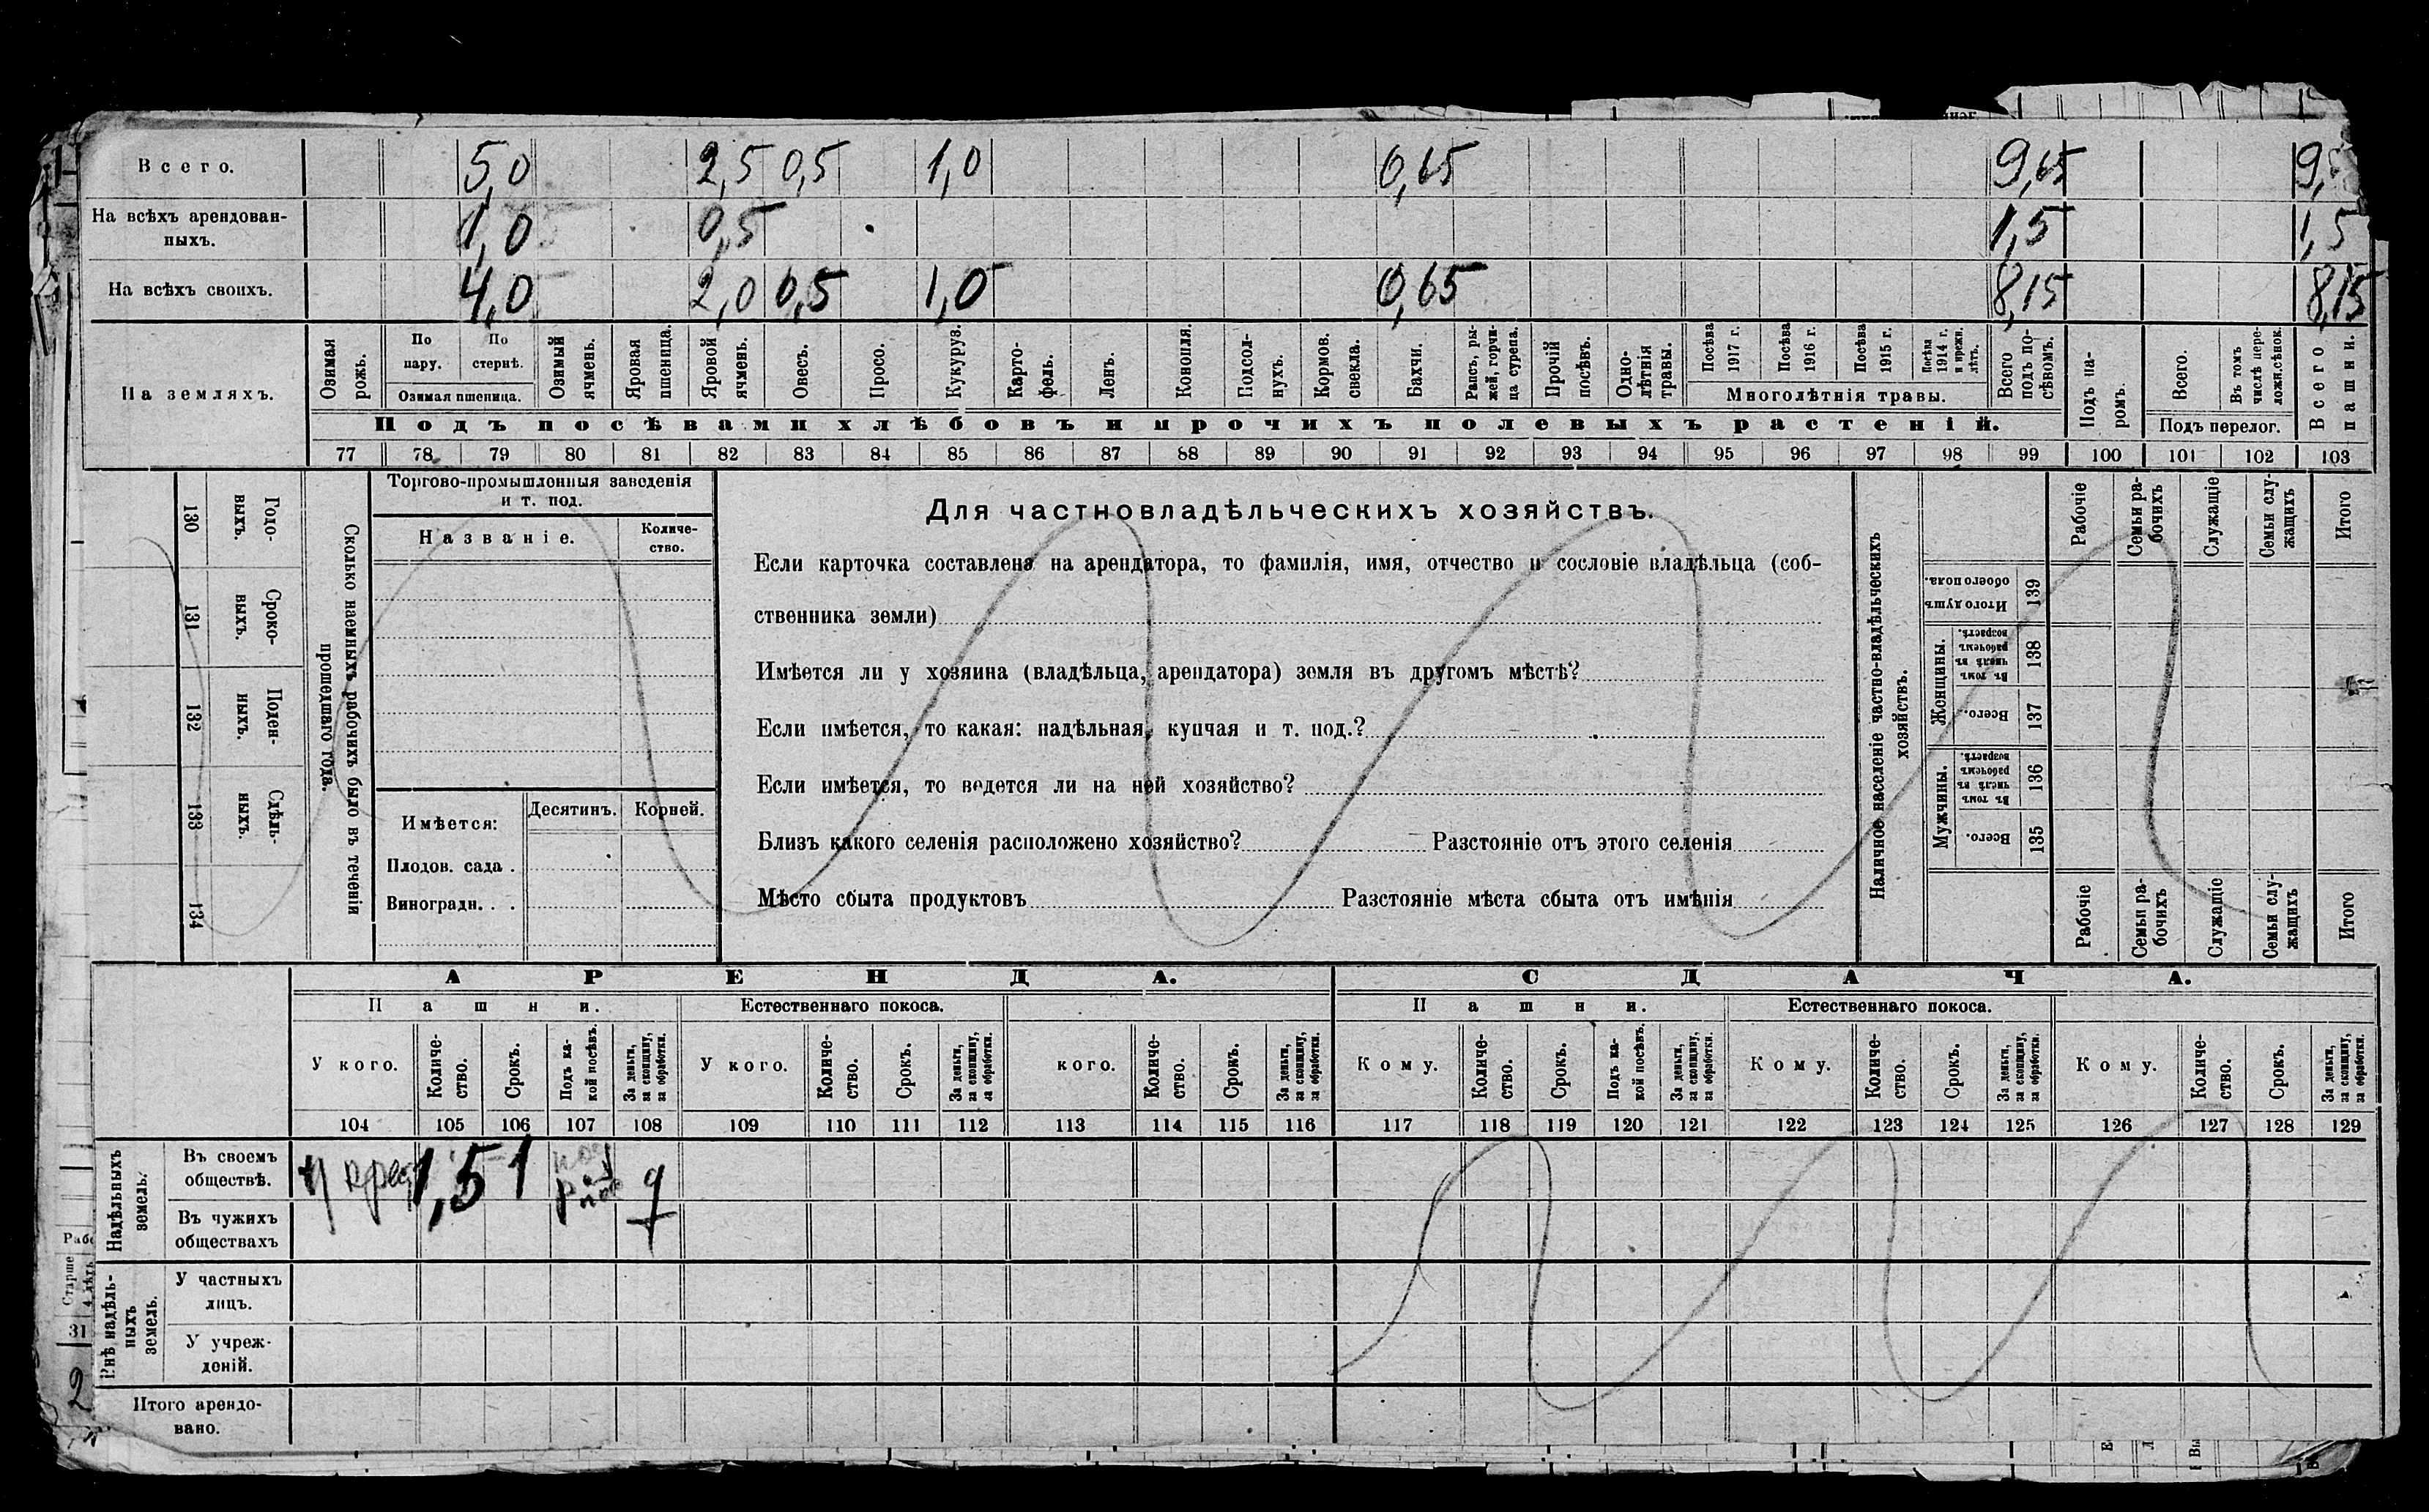 Всего. 5,0 2,5 0,5 1,0 0,65 9,65 9,
На всѣхъ арендован-
ныхъ. 1,0 0,5 1,5 1,5
На всѣхъ своихъ. 4,0 2,0 0,5 1,0 0,65 8,15 8,15
На земляхъ.
Озимая рожь.
По пару.
По стернѣ.
Озимая пшеница.
Озимый ячмень.
Яровая пшеница.
Яровой ячмень.
Овесъ.
Просо.
Кукуруз.
Карто-
фель.
Ленъ.
Конопля.
Подсол-
нухъ.
Кормов.
свекла.
Бахчи.
Рапсъ, ры-
жей, горчи-
ца сурепа.
Прочій
посѣвъ.
Одно-
лѣтнія
травы.
Посѣва
1917 г.
Посѣва
1916 г.
Посѣва
1915 г.
Посѣва
1914 г.
и прежн.
лѣтъ.
Многолѣтнія травы.
Всего
подъ по-
сѣвомъ.
Подъ па-
ромъ.
Всего.
Въ томъ
числѣ пере-
ложн.сѣнок.
Подъ перелог.
Всего
пашни.
Подъ посѣвами хлѣбовъ и прочихъ полевыхъ растеній.
77 78 79 80 81 82 83 84 85 86 87 88 89 90 91 92 93 94 95 96 97 98 99 100 101 102 103
130 Годо-
выхъ.
131 Сроко-
выхъ.
132 Поден-
ныхъ.
133 Сдѣль-
ныхъ.
134
Сколько наемныхъ рабочихъ было въ теченіи
прошедшаго года.
Торгово-промышленныя заведенія
и т. под.
Названіе.
Количе-
ство.
Имѣется: Десятинъ. Корней.
Плодов. сада .
Виноградн. . .
Для частновладѣльческихъ хозяйствъ.
Если карточка составлена на арендатора, то фамилія, имя, отчество и сословіе владѣльца (соб-
ственника земли)
Имѣется ли у хозяина (владѣльца, арендатора) земля въ другомъ мѣстѣ?
Если имѣется, то какая: надѣльная, купчая и т. под.?
Если имѣется, то ведется ли на ней хозяйство?
Близъ какого селенія расположено хозяйство? Разстояніе отъ этого селенія
Мѣсто сбыта продуктовъ Разстояніе мѣста сбыта отъ имѣнія
Наличное населеніе частно-владѣльческихъ
хозяйствъ.
Рабочіе
Семьи ра-
бочихъ
Служащіе
Семьи слу-
жащихъ
Итого
Итого душъ
обоего пола.
139
Женщины.
Въ томъ
числѣ въ
рабочемъ
возрастѣ.
138
Всего.
137
Мужчины.
Въ томъ
числѣ въ
рабочемъ
возрастѣ.
136
Всего.
135
Рабочіе
Семьи ра-
бочихъ
Служащіе
Семьи слу-
жащихъ
Итого
АРЕНДА. СДАЧА.
Пашни. Естественнаго покоса. Пашни. Естественнаго покоса.
У кого.
Количе-
ство.
Срокъ.
Подъ ка-
кой посѣвъ.
За деньги,
за скопщину,
за обработки.
У кого.
Количе-
ство.
Срокъ.
За деньги,
за скопщину,
за обработки.
кого.
Количе-
ство.
Срокъ.
За деньги,
за скопщину,
за обработки.
Кому.
Количе-
ство.
Срокъ.
Подъ ка-
кой посѣвъ.
За деньги,
за скопщину,
за обработки.
Кому.
Количе-
ство.
Срокъ.
За деньги,
за скопщину,
за обработки.
Кому.
Количе-
ство.
Срокъ.
За деньги,
за скопщину,
за обработки.
104 105 106 107 108 109 110 111 112 113 114 115 116 117 118 119 120 121 122 123 124 125 126 127 128 129
Надѣльныхъ
земель.
Въ своемъ
обществѣ. 1,5 1
Въ чужихъ
обществахъ
Внѣ надѣль-
ныхъ
земель.
У частныхъ
лицъ.
У учреж-
деній.
Итого арендо-
вано.
Старше
31
2